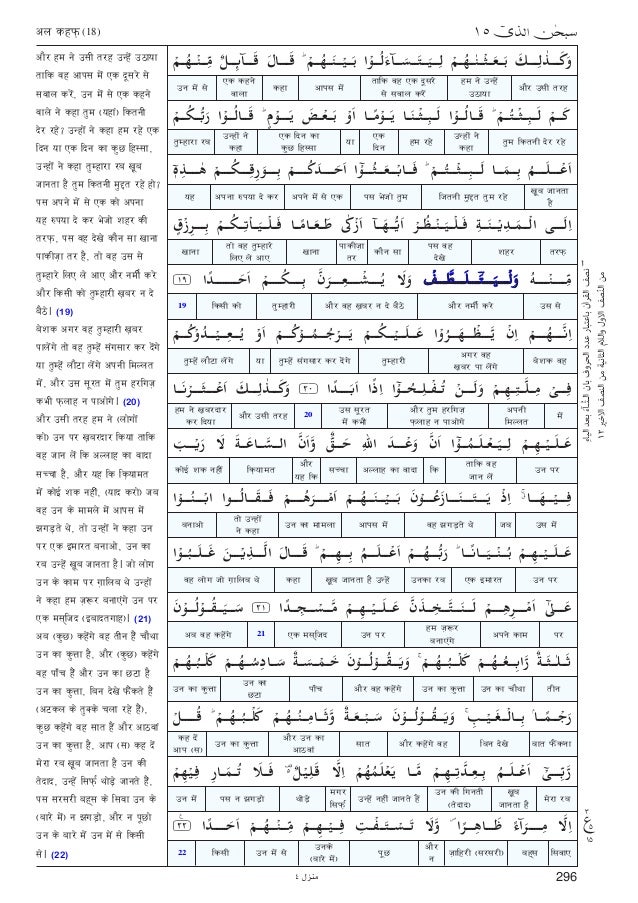 अल कहफ़ (18)
سبحٰن الذی ١٥
وَكَذٰلِكَ بَعَثْنٰهُمْ لِيَتَسَآءَلُوْا بَيْنَهُمْ ؕ قَالَ قَآئِلٌ مِّنْهُمْ
और उसी तरह हम ने उन्हें उठाया ताकि वह एक दूसरे से सवाल करें आपस में कहा एक कहने वाला उन में से
كَمْ لَبِثْتُمْ ؕ قَالُوْا لَبِثْنَا يَوْمًا اَوْ بَعْضَ يَوْمٍ ؕ قَالُوْا رَبُّكُمْ
तुम कितनी देर रहे उन्हों ने कहा हम रहे एक दिन या एक दिन का कुछ हिस्सा उन्हों ने कहा तुम्हारा रब
اَعْلَمُ بِمَا لَبِثْتُمْ ؕ فَابْعَثُوْٓا اَحَدَكُمْ بِوَرِقِكُمْ هٰذِهٖٓ
खूब जानता है जितनी मुद्दत तुम रहे पस भेजो तुम अपने में से एक अपना रुपया दे कर यह
اِلَى الْمَدِيْنَةِ فَلْيَنْظُرْ اَيُّهَآ اَزْكٰى طَعَامًا فَلْيَاْتِكُمْ بِرِزْقٍ
तरफ़ शहर पस वह देखे कौन सा पाकीज़ा तर खाना तो वह तुम्हारे लिए ले आए खाना
مِّنْهُ وَلْيَتَلَطَّفْ وَلَا يُشْعِرَنَّ بِكُمْ اَحَدًا ١٩
उस से और नर्मी करे और वह ख़बर न दे बैठे तुम्हारी किसी को 19
اِنَّهُمْ اِنْ يَّظْهَرُوْا عَلَيْكُمْ يَرْجُمُوْكُمْ اَوْ يُعِيْدُوْكُمْ
बेशक वह अगर वह ख़बर पा लेंगे तुम्हारी तुम्हें संगसार कर देंगे या तुम्हें लौटा लेंगे
فِيْ مِلَّتِهِمْ وَلَنْ تُفْلِحُوْٓا اِذًا اَبَدًا ٢٠ وَكَذٰلِكَ اَعْثَرْنَا
में अपनी मिल्लत और तुम हरगिज़ फ़लाह न पाओगे उस सूरत में कभी 20 और उसी तरह हम ने ख़बरदार कर दिया
عَلَيْهِمْ لِيَعْلَمُوْٓا اَنَّ وَعْدَ اللّٰهِ حَقٌّ وَّاَنَّ السَّاعَةَ لَا رَيْبَ
उन पर ताकि वह जान लें कि अल्लाह का वादा सच्चा और यह कि क़ियामत कोई शक नहीं
فِيْهَا ۚ اِذْ يَتَنَازَعُوْنَ بَيْنَهُمْ اَمْرَهُمْ فَقَالُوا ابْنُوْا
उस में जब वह झगड़ते थे आपस में उन का मामला तो उन्हों ने कहा बनाओ
عَلَيْهِمْ بُنْيَانًا ؕ رَبُّهُمْ اَعْلَمُ بِهِمْ ؕ قَالَ الَّذِيْنَ غَلَبُوْا
उन पर एक इमारत उनका रब खूब जानता है उन्हें कहा वह लोग जो ग़ालिब थे
عَلٰٓى اَمْرِهِمْ لَنَتَّخِذَنَّ عَلَيْهِمْ مَّسْجِدًا ٢١ سَيَقُوْلُوْنَ
पर अपने काम हम ज़रूर बनाएंगे उन पर एक मस्जिद 21 अब वह कहेंगे
ثَلٰثَةٌ رَّابِعُهُمْ كَلْبُهُمْ ۚ وَيَقُوْلُوْنَ خَمْسَةٌ سَادِسُهُمْ كَلْبُهُمْ
तीन उन का चौथा उन का कुत्ता और वह कहेंगे पाँच उन का छटा उन का कुत्ता
رَجْمًۢا بِالْغَيْبِ ۚ وَيَقُوْلُوْنَ سَبْعَةٌ وَّثَامِنُهُمْ كَلْبُهُمْ ؕ قُلْ
बात फेंकना बिन देखे और कहेंगे वह सात और उन का आठवां उन का कुत्ता कह दें आप (स)
رَّبِّيْٓ اَعْلَمُ بِعِدَّتِهِمْ مَّا يَعْلَمُهُمْ اِلَّا قَلِيْلٌ ۬ فَلَا تُمَارِ فِيْهِمْ
मेरा रब खूब जानता है उन की गिनती (तेदाद) उन्हें नहीं जानते हैं मगर सिर्फ़ थोड़े पस न झगड़ो उन में
اِلَّا مِرَآءً ظَاهِرًا ۪ وَّلَا تَسْتَفْتِ فِيْهِمْ مِّنْهُمْ اَحَدًا ٢٢
सिवाए बहस ज़ाहिरी (सरसरी) और न पूछ उनके (बारे में) उन में से किसी 22
और हम ने उसी तरह उन्हें उठाया
ताकि वह आपस में एक दूसरे से
सवाल करें, उन में से एक कहने
वाले ने कहा तुम (यहां) कितनी
देर रहे? उन्हों ने कहा हम रहे एक
दिन या एक दिन का कुछ हिस्सा,
उन्हों ने कहा तुम्हारा रब खूब
जानता है तुम कितनी मुद्दत रहे हो?
पस अपने में से एक को अपना
यह रुपया दे कर भेजो शहर की
तरफ़, पस वह देखे कौन सा खाना
पाकीज़ा तर है, तो वह उस से
तुम्हारे लिए ले आए और नर्मी करे
और किसी को तुम्हारी ख़बर न दे
बैठे। (19)
बेशक अगर वह तुम्हारी ख़बर
पालेंगे तो वह तुम्हें संगसार कर देंगे
या तुम्हें लौटा लेंगे अपनी मिल्लत
में, और उस सूरत में तुम हरगिज़
कभी फ़लाह न पाओगे। (20)
और उसी तरह हम ने (लोगों
को) उन पर ख़बरदार किया ताकि
वह जान लें कि अल्लाह का वादा
सच्चा है, और यह कि क़ियामत
में कोई शक नहीं, (याद करो) जब
वह उन के मामले में आपस में
झगड़ते थे, तो उन्हों ने कहा उन
पर एक इमारत बनाओ, उन का
रब उन्हें खूब जानता है। जो लोग
उन के काम पर ग़ालिब थे उन्हों
ने कहा हम ज़रूर बनाएंगे उन पर
एक मस्जिद (इबादतगाह)। (21)
अब (कुछ) कहेंगे वह तीन हैं चौथा
उन का कुत्ता है, और (कुछ) कहेंगे
वह पाँच हैं और उन का छटा है
उन का कुत्ता, बिन देखे फेंकते हैं
(अटकल के तुक्के चला रहे हैं)।
कुछ कहेंगे वह सात हैं और आठवां
उन का कुत्ता है, आप (स) कह दें
मेरा रब खूब जानता है उन की
तेदाद, उन्हें सिर्फ़ थोड़े जानते हैं,
पस सरसरी बहस के सिवा उन के
(बारे में) न झगड़ो, और न पूछो
उन के बारे में उन में से किसी
से। (22)
منزل ٤
296